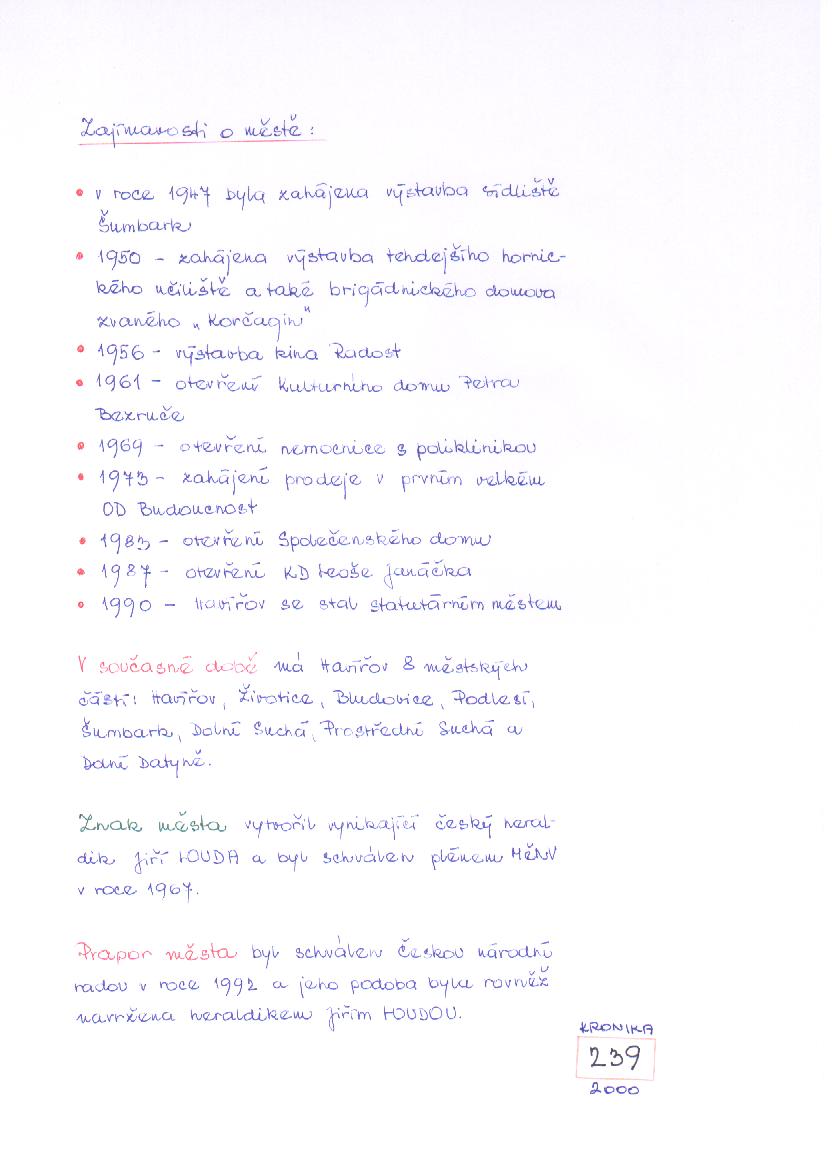 Zajímavosti o městě:
• v roce 1947 byla zahájena výstavba sídliště
Šumbark
• 1950 - zahájena výstavba tehdejšího hornic-
kého učiliště a také brigádnického domova
zvaného „Korčagin"
• 1956 - výstavba kina Radost
• 1961 - otevření Kulturního domu Petra
Bezruče
• 1969 - otevření nemocnice s poliklinikou
• 1973 - zahájení prodeje v prvním velkém
OD Budoucnost
• 1983 - otevření Společenského domu
• 1987 - otevření KD Leoše Janáčka
• 1990 - Havířov se stal statutárním městem
V současné době má Havířov 8 městských
částí: Havířov, Životice, Bludovice, Podlesí,
Šumbark, Dolní Suchá, Prostřední Suchá a
Dolní Datyně.
Znak města vytvořil vynikající český heral-
dik Jiří LOUDA a byl schválen plénem MěNV
v roce 1967.
Prapor města byl schválen Českou národní
radou v roce 1992 a jeho podoba byla rovněž
navržena heraldikem Jiřím LOUDOU.
KRONIKA
239
2000